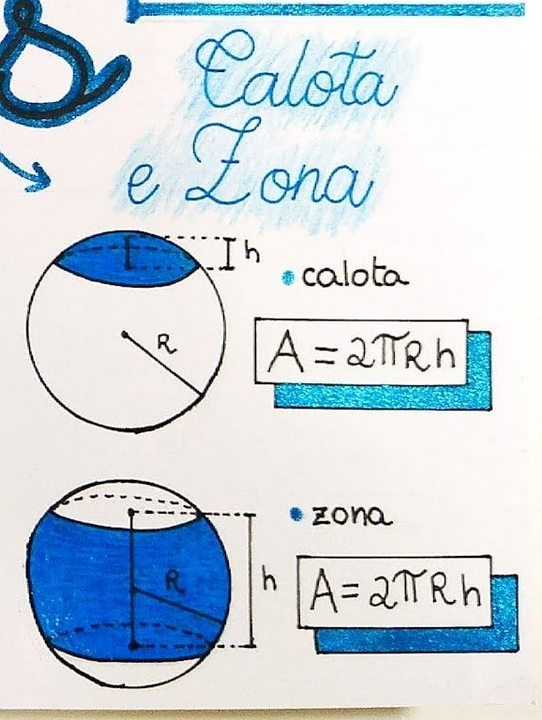 Calota
e Zona
h
• calota
R
A = 2πRh
• zona
R
h
A = 2πRh